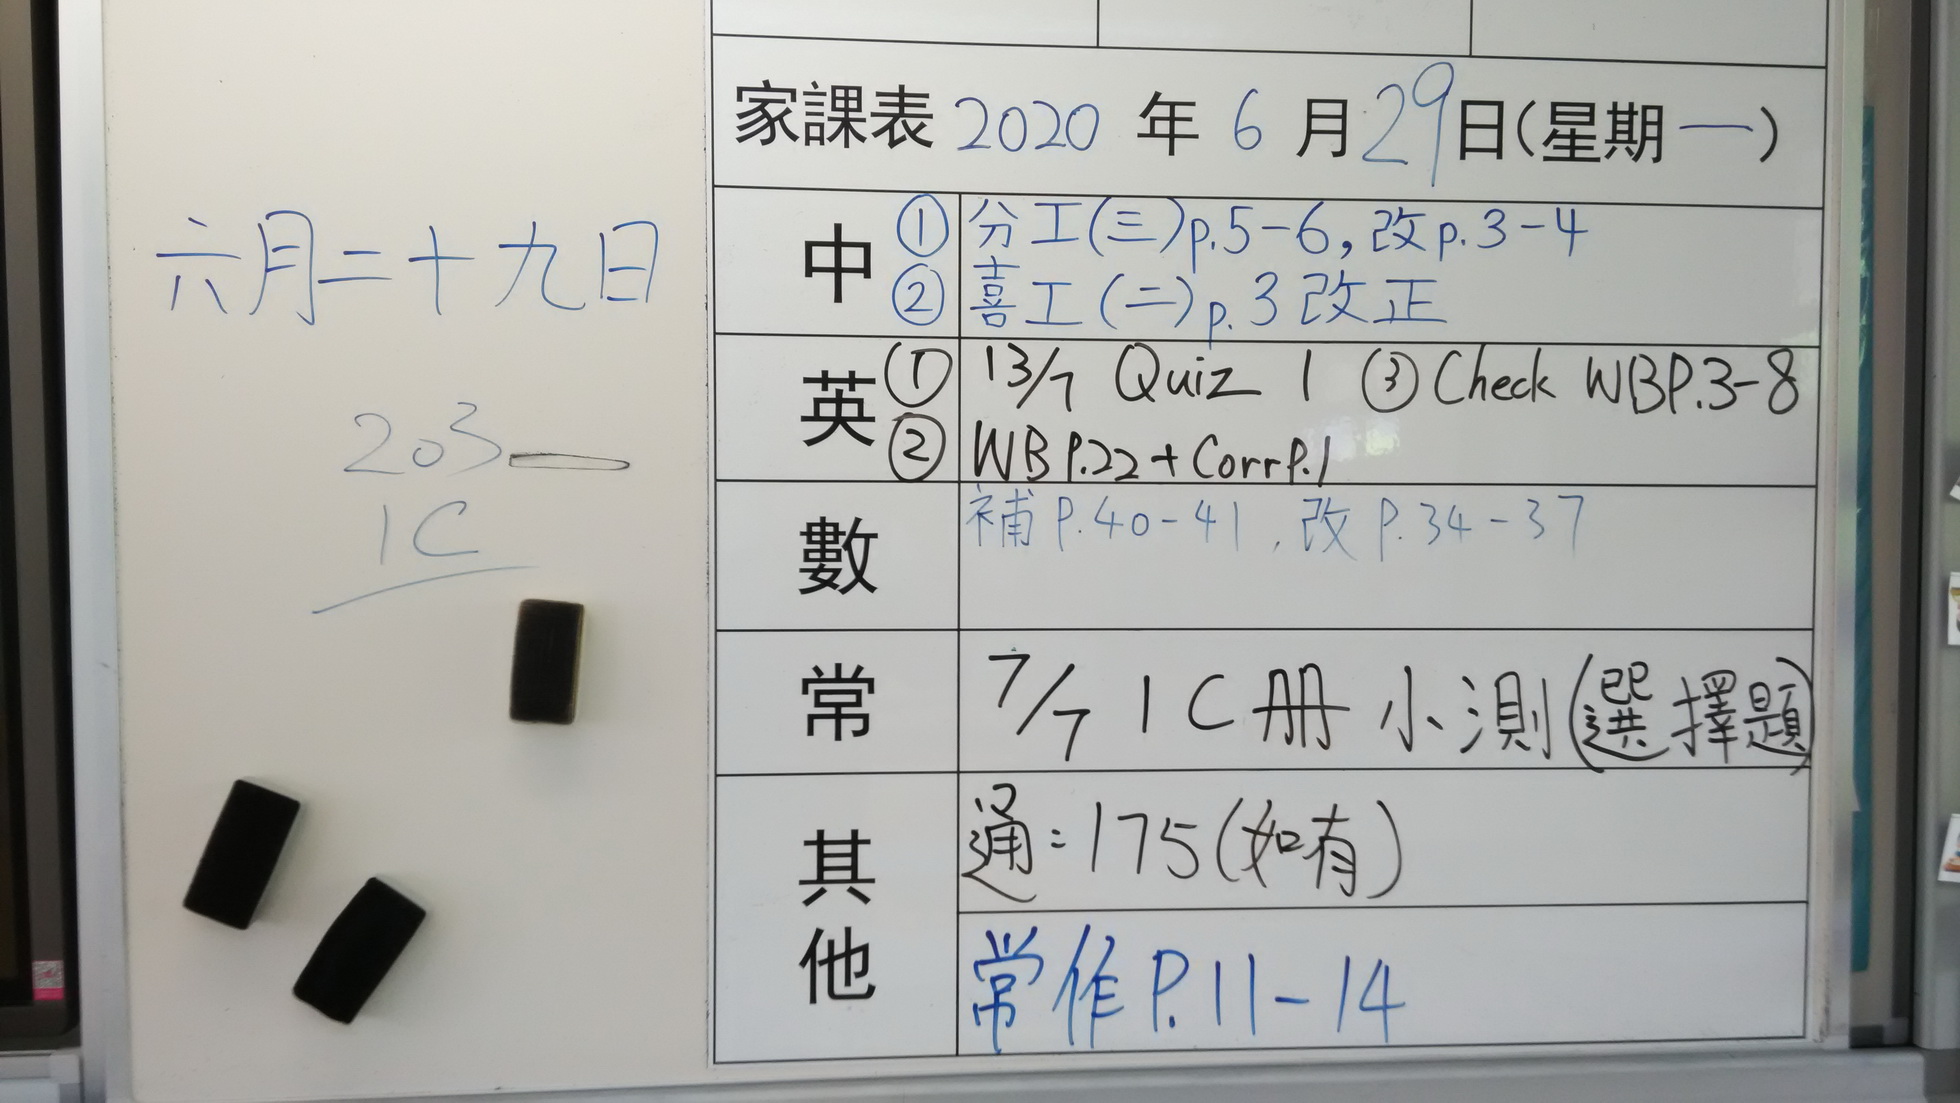 六月二十九日
203
1C
家課表 2020 年 6 月 29 日(星期一)
中
① 分工(三)p.5-6, 改p.3-4
② 喜工(二)p.3 改正
英
① 13/7 Quiz 1 ③ Check WBP.3-8
② WB P.22 + Corr P.1
數
補 P.40-41, 改 P.34-37
常
7/7 1C冊 小測(選擇題)
其他
通:175(如有)
常作P.11-14